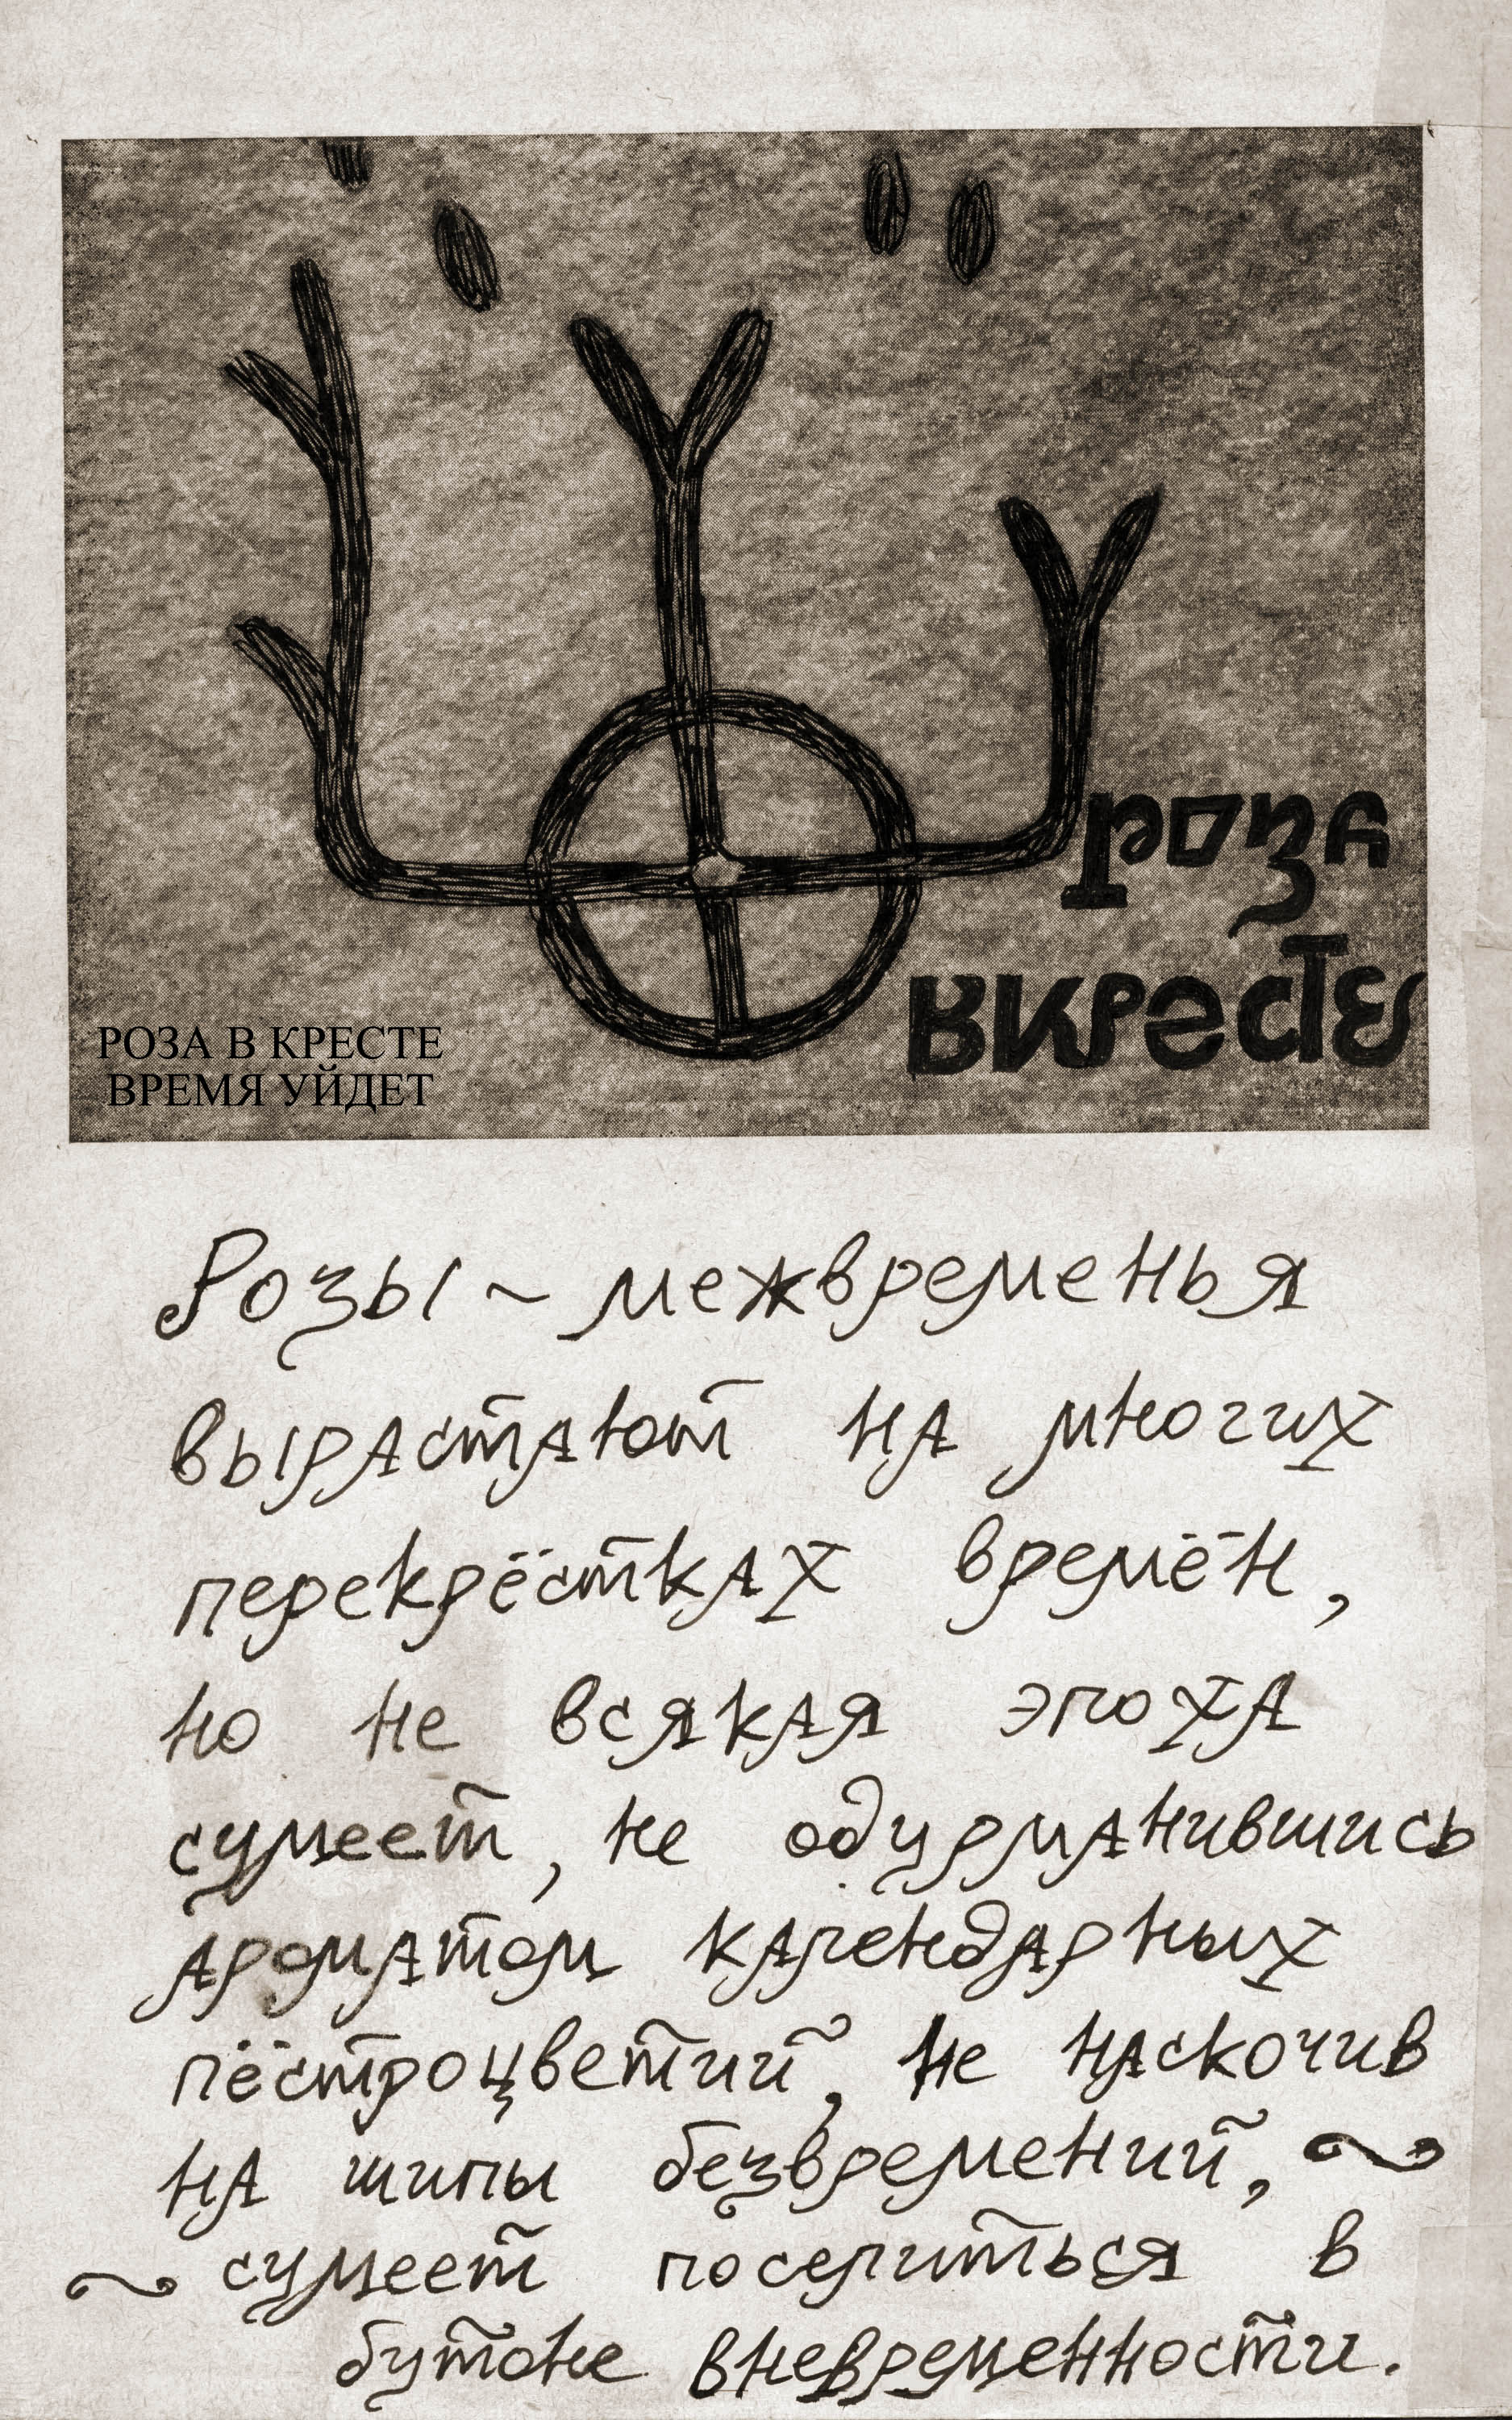 РОЗА В КРЕСТЕ
ВРЕМЯ УЙДЕТ
Розы ~ межвременья
вырастают на многих
перекрёстках времён,
но не всякая эпоха
сумеет, не одурманившись
ароматом календарных
пёстроцветий, не наскочив
на шипы безвремений, ~
~ сумеет поселиться в
бутоне вневременности.